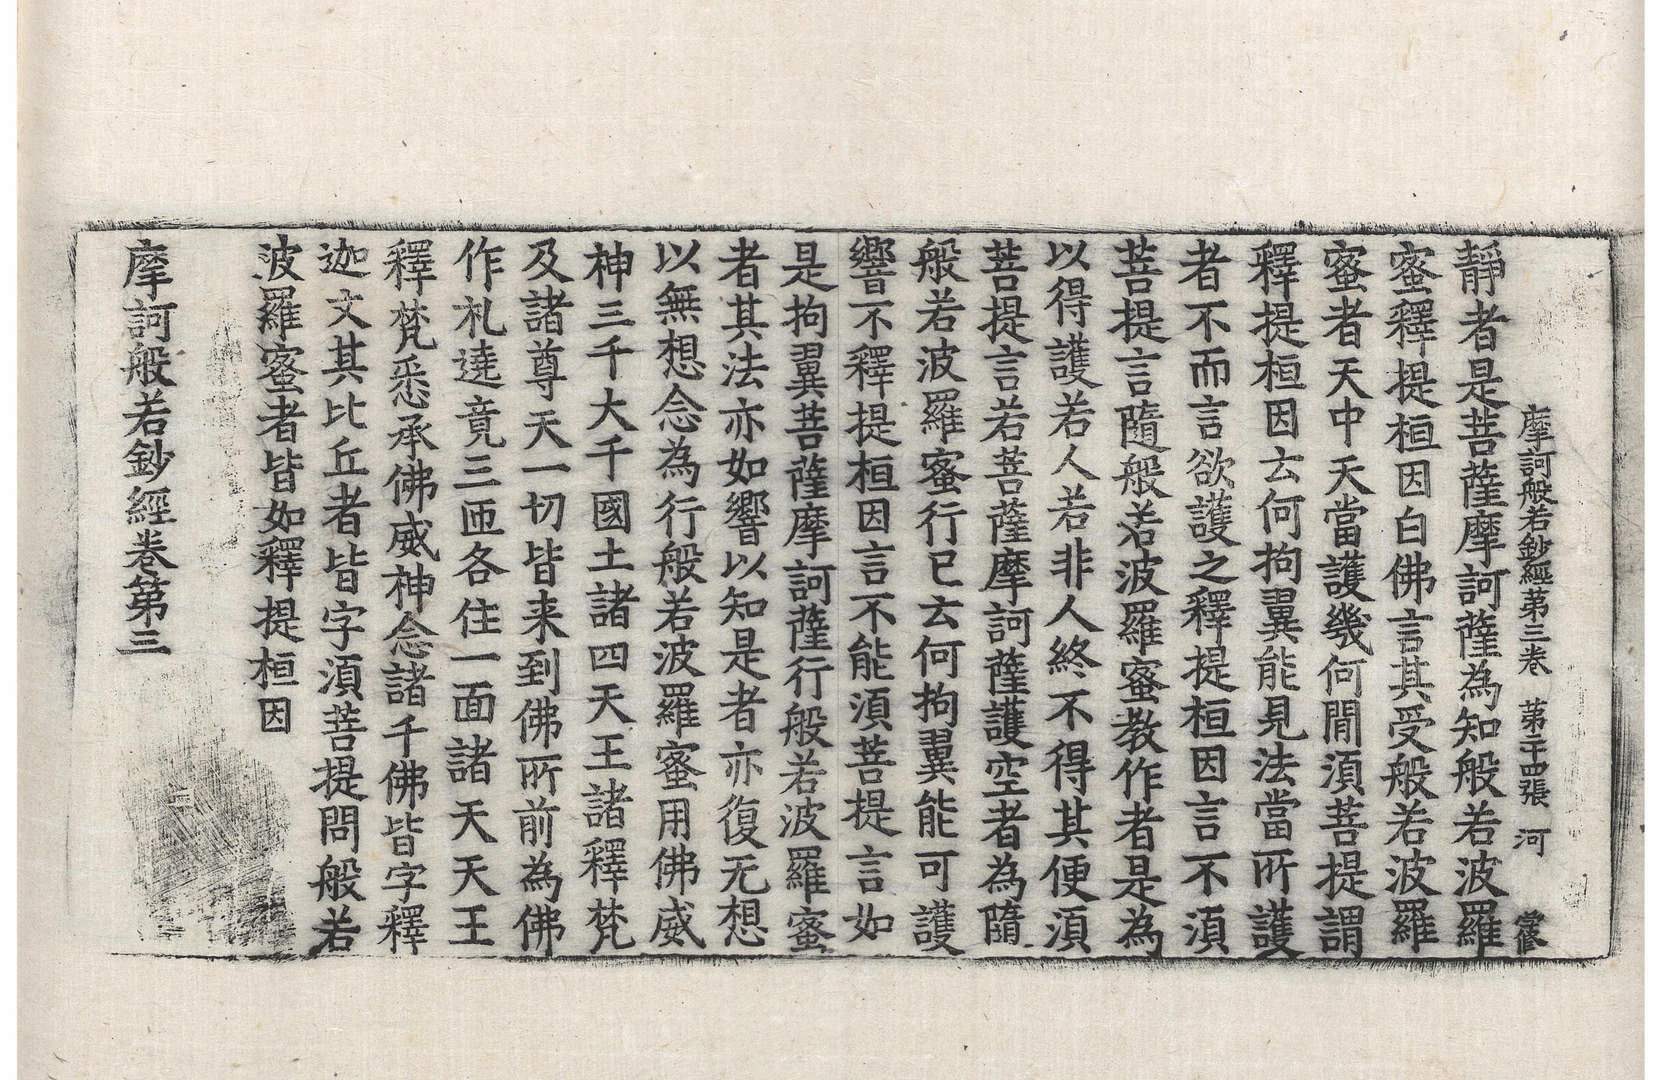 摩訶般若鈔經第三卷　第二十四張　河
靜者是菩薩摩訶薩為知般若波羅
蜜釋提桓因白佛言其受般若波羅
蜜者天中天當護幾何閒湏菩提謂
釋提桓因云何拘翼能見法當所護
者不而言欲護之釋提桓因言不湏
菩提言隨般若波羅蜜教作者是為
以得護若人若非人終不得其便湏
菩提言若菩薩摩訶薩護空者為隨
般若波羅蜜行已云何拘翼能可護
響不釋提桓因言不能湏菩提言如
是拘翼菩薩摩訶薩行般若波羅蜜
者其法亦如響以知是者亦復无想
以無想念為行般若波羅蜜用佛威
神三千大千國土諸四天王諸釋梵
及諸尊天一切皆来到佛所前為佛
作礼遶竟三匝各住一面諸天天王
釋梵悉承佛威神念諸千佛皆字釋
迦文其比丘者皆字湏菩提問般若
波羅蜜者皆如釋提桓因
摩訶般若鈔經卷第三